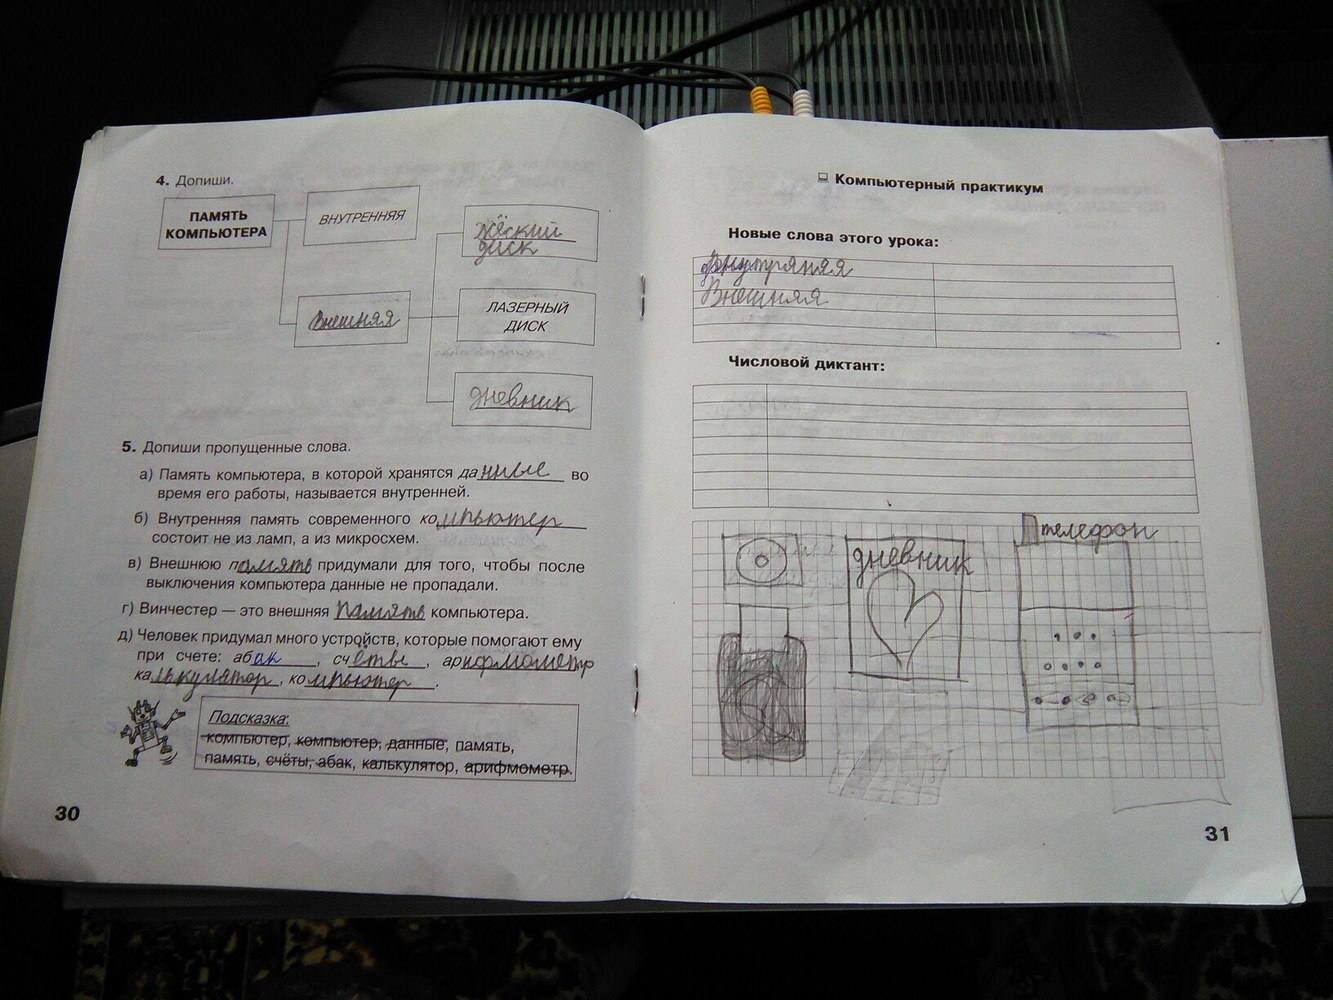 4. Допиши.
ПАМЯТЬ
КОМПЬЮТЕРА
ВНУТРЕННЯЯ
жёский
диск
Внешняя
ЛАЗЕРНЫЙ
ДИСК
дневник
5. Допиши пропущенные слова.
а) Память компьютера, в которой хранятся данные во
время его работы, называется внутренней.
б) Внутренняя память современного компьютер
состоит не из ламп, а из микросхем.
в) Внешнюю память придумали для того, чтобы после
выключения компьютера данные не пропадали.
г) Винчестер — это внешняя память компьютера.
д) Человек придумал много устройств, которые помогают ему
при счете: абак, счётвы, арифмометр
калькулятор, компьютер.
Подсказка:
компьютер, компьютер, данные, память,
память, счёты, абак, калькулятор, арифмометр.
30
Компьютерный практикум
Новые слова этого урока:
Внутряняя
Внешняя
Числовой диктант:
дневник
телефон
31